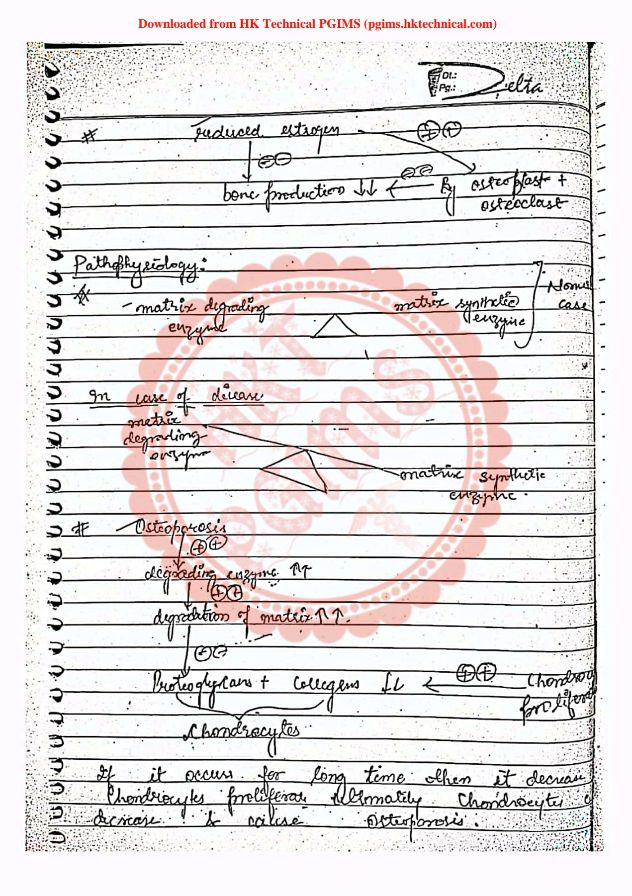 Downloaded from HK Technical PGIMS (pgims.hktechnical.com)
Dt.:
Pg.:
Delta
# reduced estrogen ⊕⊕
⊖⊖
bone production ↓↓ ← ⊖⊖ By osteoplast +
osteoclast
Pathophysiology:
- matrix degrading matrix synthetic
enzyme enzyme
case
In case of disease
matrix
degrading
enzym
matrix synthetic
enzyme.
# Osteoporosis
⊕⊕
degrading enzyme ↑↑
⊕⊕
degradation of matrix ↑↑.
⊖⊖
Proteoglycans + Collegens ↓↓ ← ⊕⊕ Chondrocy
prolifera
Chondrocytes
If it occurs for long time then it decrease
Chondrocytes proliferat ultimately Chondrocytes
decrease & cause Osteoporosis.
HKT
PGIMS